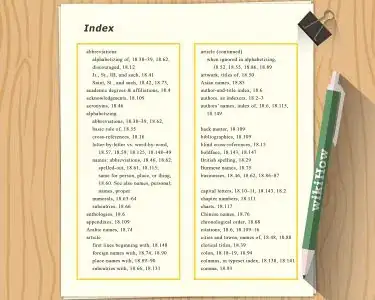 Index
abbreviations
alphabetizing of, 18.38–39, 18.62,
discouraged, 18.12
Jr., Sr., III, and such, 18.41
Saint, St., and such, 18.42, 18.75,
academic degrees & affiliations, 8.4
acknowledgements, 18.109
acronyms, 18.46
alphabetizing
abbreviations, 18.38–39, 18.62,
basic rule of, 18.55
cross-references, 18.16
letter-by-letter vs. word-by-word,
18.57, 18.59 18.125, 18.148–49
names: abbreviations, 18.46, 18.62,
spelled-out, 18.61, 18.113,
same for person, place, or thing,
18.60. See also names, personal;
names, proper
numerals, 18.63–64
subentries, 18.66
anthologies, 18.6
appendixes, 18.109
Arabic names, 18.74
article
first lines beginning with, 18.148
foreign names with, 18.74, 18.90
place names with, 18.89–90
subentries with, 18.68, 18.131
article (continued)
when ignored in alphabetizing,
18.52, 18.55, 18.86, 18.89
artwork, titles of, 18.50
Asian names, 18.85
author-and-title index, 18.6
authors, as indexers, 18.2–3
authors' names, index of, 18.6, 18.115,
18.149
back matter, 18.109
bibliographies, 18.109
blind cross-references, 18.15
boldface, 18.147, 18.147
British spelling, 18.29
Burmese names, 18.75
businesses, 18.46, 18.62, 18.86–87
capital letters, 18.10–11, 18.145, 18.2
chapter numbers, 18.111
charts, 18.117
Chinese names, 18.76
chronological order, 18.68
citations, 18.6, 18.109–16
cities and towns, names of, 18.48, 18.88
clerical titles, 18.39
colon, 18.18–19, 18.94
columns, in typeset index, 18.136, 18.141
commas, 18.93
wikiHow